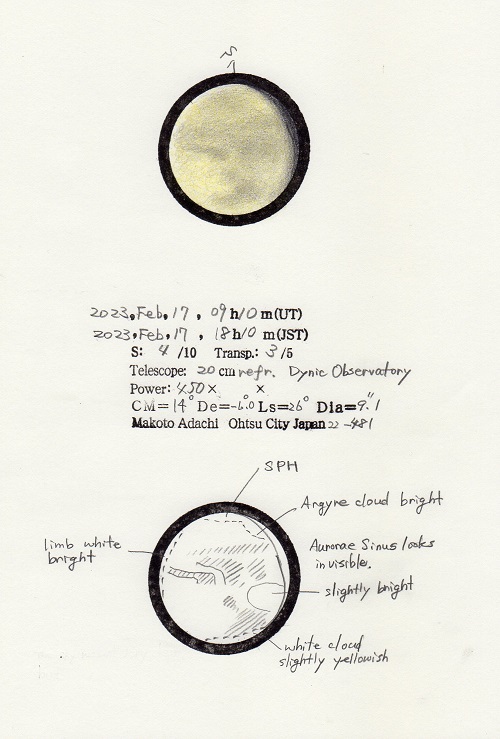 S
2023, Feb, 17, 09h10m(UT)
2023, Feb, 17, 18h10m(JST)
S: 4/10 Transp.: 3/5
Telescope: 20 cm refr. Dynic Observatory
Power: 450× ×
CM=14° De=-6.0° Ls=26° Dia=9.1"
Makoto Adachi Ohtsu City Japan 22-481
SPH
Argyre cloud bright
limb white
bright
Aurorae Sinus looks
invisible.
slightly bright
white cloud
slightly yellowish